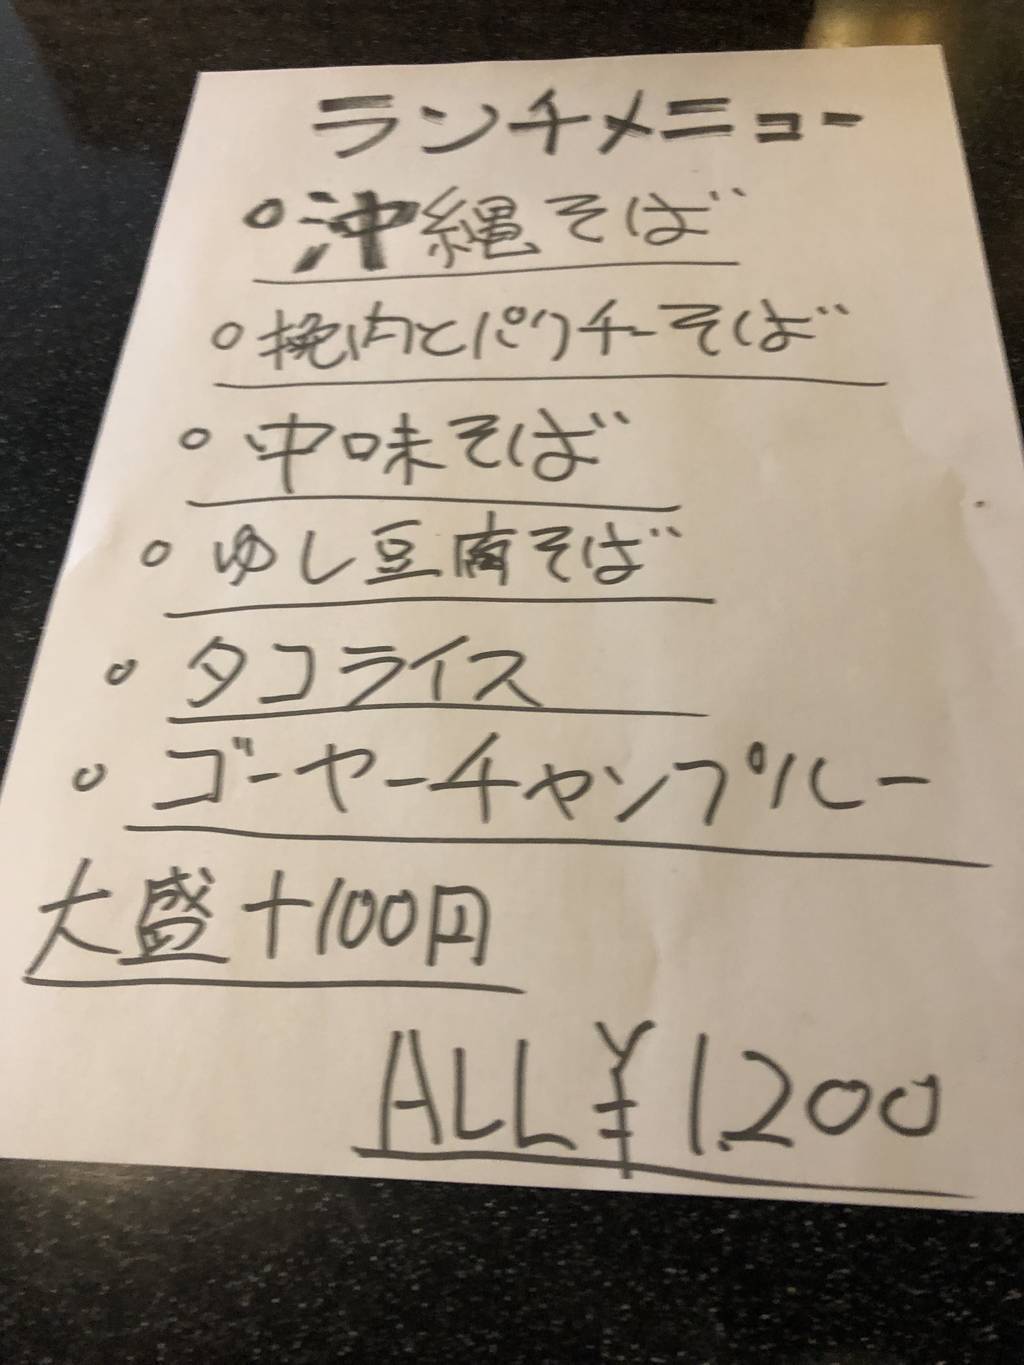 ランチメニュー
○沖縄そば
○挽肉とパクチーそば
○中味そば
○ゆし豆腐そば
○タコライス
○ゴーヤーチャンプルー
大盛+100円
ALL¥1.200